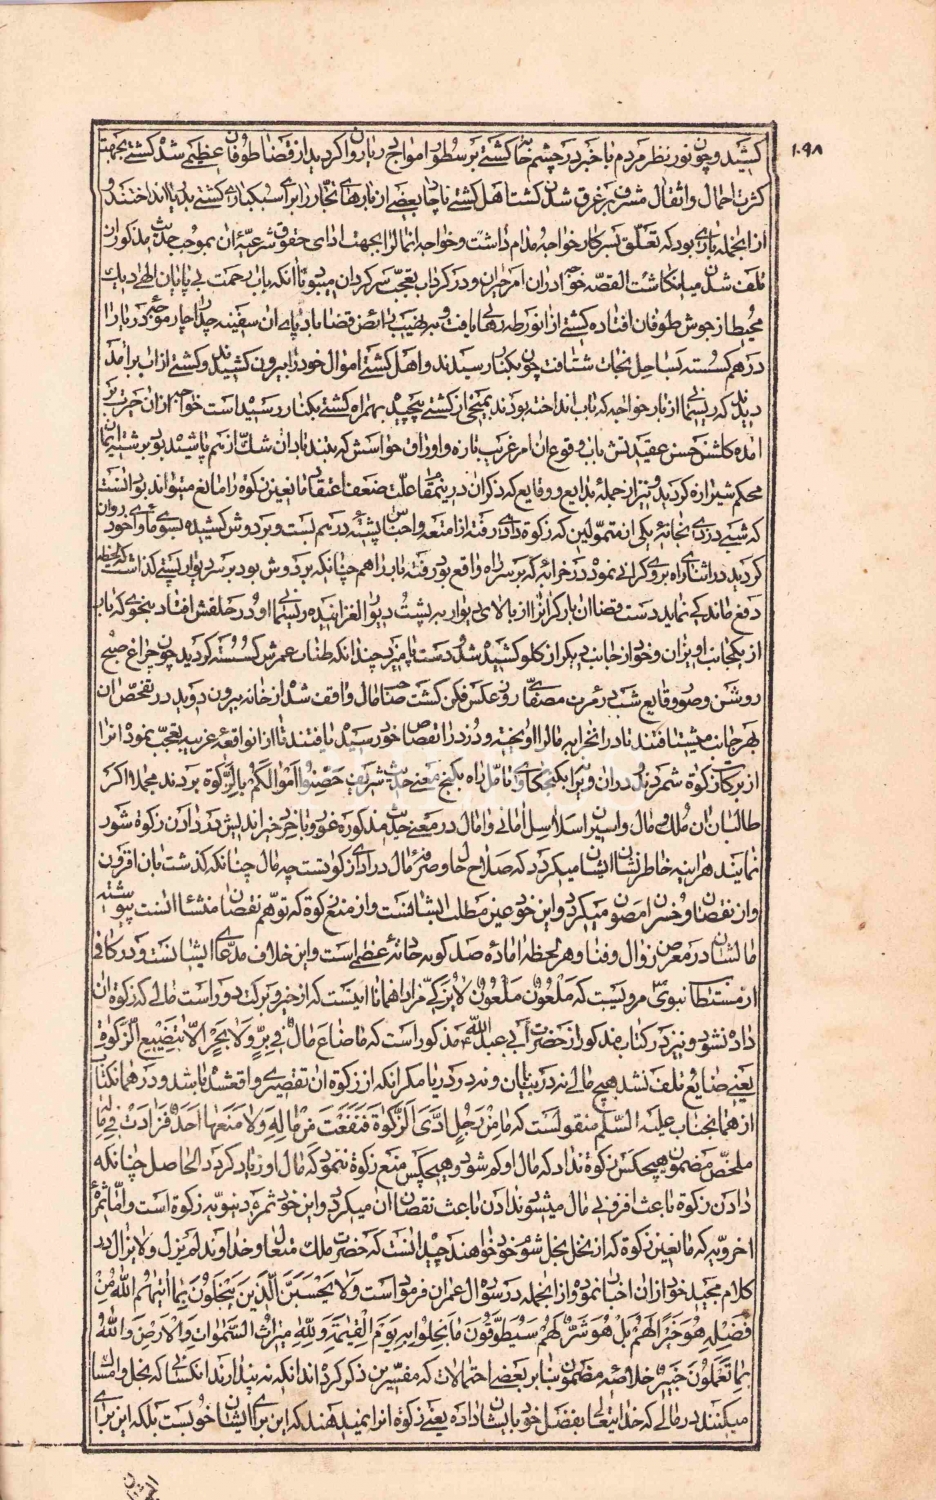 ۱۰۹۸
کشید و چون نور نظر مردم با خبر در چشم خانه کشتی بر سطور امواج دریا روان کردید از قضا طوفان عظیمی شد کشتی بجهت
کثرت احمال و اثقال مشرف بر غرق شدن کشت اهل کشتی ناچار بعضی از بارهای تجار را برای سبکباری کشتی بدریا انداختند و
از انجمله باری بود که تعلق بسرکار خواجه مذام داشت و خواجه انمال را بجهت ادای حقوق شرعیه ان بموجب حدیث مذکور از
تلف شدن میانکاشت القصه خواجه در ان امر حیران و در کرداب تعجب سرکردان میبود تا انکه باب رحمت بی پایان الهی دیک
محیط از جوش طوفان افتاده کشتی از انورطه رهائی یافت و بر نهیب رائض قضا باد پای ان سفینه چدار چار موجه دریا را
در هم کسسته بساحل نجات شتافت چون بکنار رسیدند و اهل کشتی اموال خود را بیرون کشیدند و کشتی از اب برامد
دیدند که ریسمانی از بار خواجه که باب انداخته بودند بمیخی از کشتی پیچیده بهمراه کشتی بکنار رسیده است خواجه از ان حیرت بر
امده کلشن حسن عقیدتش باب وقوع ان امر غریب تازه و اوراق حواسش که بتند باد ان شک از هم پاشیده بود بر شته ایمان
محکم شیرازه کردید و نیز از جمله بدایع و وقایع که ذکر ان درینمقام علت ضعف اعتقاد مانعین زکوة را مانع میتواند بود انست
که شبی دزدی بخانه یکی از متمولین که زکوة دادی رفته از امتعه و اجناس پشته در هم بست و بر دوش کشیده بسوی ماوای خود روان
کردید در اثنای راه بروی کرانی نموده در خرابه که بر سر راه واقع بود رفته تا بار را همچنانکه بر دوش بود بر سر دیوار پستی کذاشت که لحظه
دفع ماندکی نماید دست قضا ان بار کرانرا از بالای دیوار به پشت دیوار لغزانیده ریسمانی او در حلقش افتاد بنحوی که بار
از یکجانب اویزان و خود از جانب دیکر از کلو کشیده شد دست و پا میزد چندانکه طناب عمرش کسسته کردید چون چراغ صبح
روشن و صور وقایع شب در مرات مصفای روز عکس فکن کشت صاحب مال واقف شد از خانه بیرون دوید در تفحص ان
بهر جانب میشتافتند تا در انخرابه مال را اویخته و دزد را بقصاص خود رسیده یافتند تا از انواقعه غریبه تعجب نموده انرا
از برکات زکوة شمردند در ان ویرانه بکنجکاوی تامل راه بکنج معنی حدیث شریف حصنوا اموالکم بالزکوة بردند مجملا اکر
طالبان ان ملک و مال و اسیران سلاسل امانی و امال در معنی حدیث مذکوره غور و با خرد خبر اندیش در دادن زکوة شور
نمایند هراینه خاطرنشان ایشان میکردد که صلاح حال و صرفه مال در ادای زکوتست چه مال چنانکه کذشت بان افزون
و از نقصان و خسران مصون میکردد و این خود عین مطلب ایشانست و از منع زکوة که توهم نقصان منشا انست پیوسته
مالشان در معرض زوال و فنا و هر لحظه اماده صد کونه حادثه عظمی است و این خلاف مدعای ایشانست و در کافی
از حضرت نبوی مرویست که ملعون ملعون مال لا یزکی مراد همانا اینست که از خیر و برکت دور است مالی که زکوة ان
داده نشود و نیز در کتاب مذکور از حضرت ابی عبدالله ع مذکور است که ما ضاع مال فی بر ولا بحر الا بتضییع الزکوة
یعنی ضایع و تلف نشد هیچ مالی نه در بیابان و نه در دریا مکر انکه از زکوة ان تقصیری واقع شده باشد و در همان کتاب
از همان جناب علیه السلم منقولست که ما من رجل ادی الزکوة فنقصت من ماله ولا منعها احد فزادت فی ماله
ملخص مضمون هیچکس زکوة نداد که مال او کم شود و هیچکس منع زکوة ننمود که مال او زیاد کردد الحاصل چنانکه
دادن زکوة باعث افزونی مال میشود ندادن باعث نقصان ان میکردد و این خود ثمره دنیویه زکوة است و اما ثمره
اخرویه که مانعین زکوة که از نخل بخل شوم خود خواهند چید انست که حضرت ملک متعال و خداوند لم یزل و لا یزال در
کلام مجید خود از ان اخبار نموده و از انجمله در سوره ال عمران فرموده است و لا یحسبن الذین یبخلون بما اتیهم الله من
فضله هو خیرا لهم بل هو شر لهم سیطوقون ما بخلوا به یوم القیمة و لله میراث السموات و الارض والله
بما تعملون خبیر خلاصه مضمون بنابر بعضی احتمالات که مفسرین ذکر کرده اند انکه نه پندارند انکسانی که بخل و امساک
میکنند در مالی که خدایتعالی بفضل خود بایشان داده یعنی زکوة انرا نمیدهند که این برای ایشان خوبست بلکه این برای